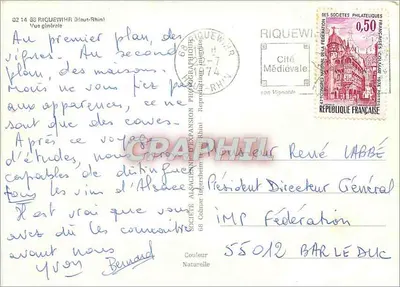 02 14 68 RIQUEWIHR (Haut-Rhin)
Vue générale
Au premier plan, des
vignes. Au second
plan, des maisons.
Mais ne vous fiez pas
aux apparences, ce ne
sont que des caves.
Après ce voyage
d'études, nous
capables de
tous les vins d'Alsace
Il est vrai que vous
avez dû les connaître
avant nous
Yvon Bernard
SOCIETE ALSACIENNE D'EXPANSION PHOTOGRAPHIQUE
68 Colmar Ingersheim
Couleur
Naturelle
68 RIQUEWIHR
74
RHIN
RIQUEWI
Cité
Médiévale
son Vignoble
0,50
DES SOCIETES PHILATELIQUES
FRANÇAISES COLMAR
CHARTRIN
Monsieur René LABBÉ
Président Directeur Général
IMP Fédération
55012 BAR LE DUC